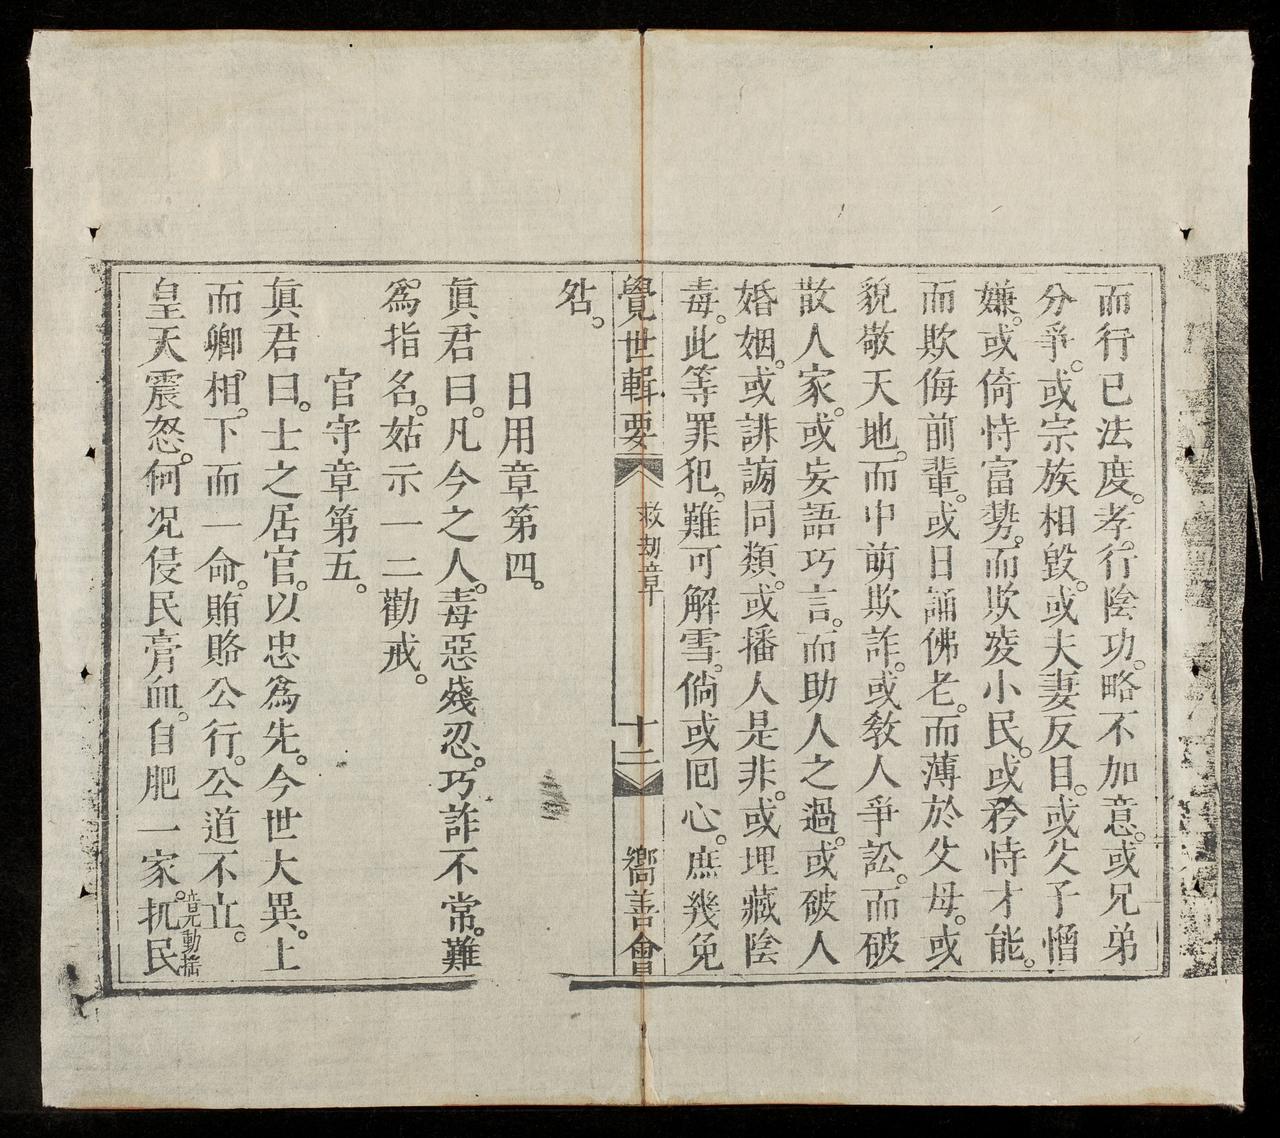 而行已法度。孝。行陰功。略不加意。或兄弟
分爭。或宗族相毀。或夫妻反目。或父子憎
嫌。或倚恃富勢。而欺凌小民。或矜恃才能。
而欺侮前輩。或日誦佛老。而薄於父母。或
貌敬天地。而中萌欺詐。或教人爭訟。而破
散人家。或妄語巧言。而助人之過。或破人
婚姻。或誹謗同類。或播人是非。或埋藏陰
毒。此等罪犯。難可解雪。倘或囘心。庶幾免
覺世輯要 救劫章 十二 嚮善會
咎。
日用章第四。
眞君曰。凡今之人。毒惡殘忍。巧詐不常。難
爲指名。姑示一二勸戒。
官守章第五。
眞君曰。士之居官。以忠爲先。今世大異。上
而卿相。下而一命。賄賂公行。公道不立。
皇天震怒。何况侵民膏血。自肥一家。扤音兀動搖民